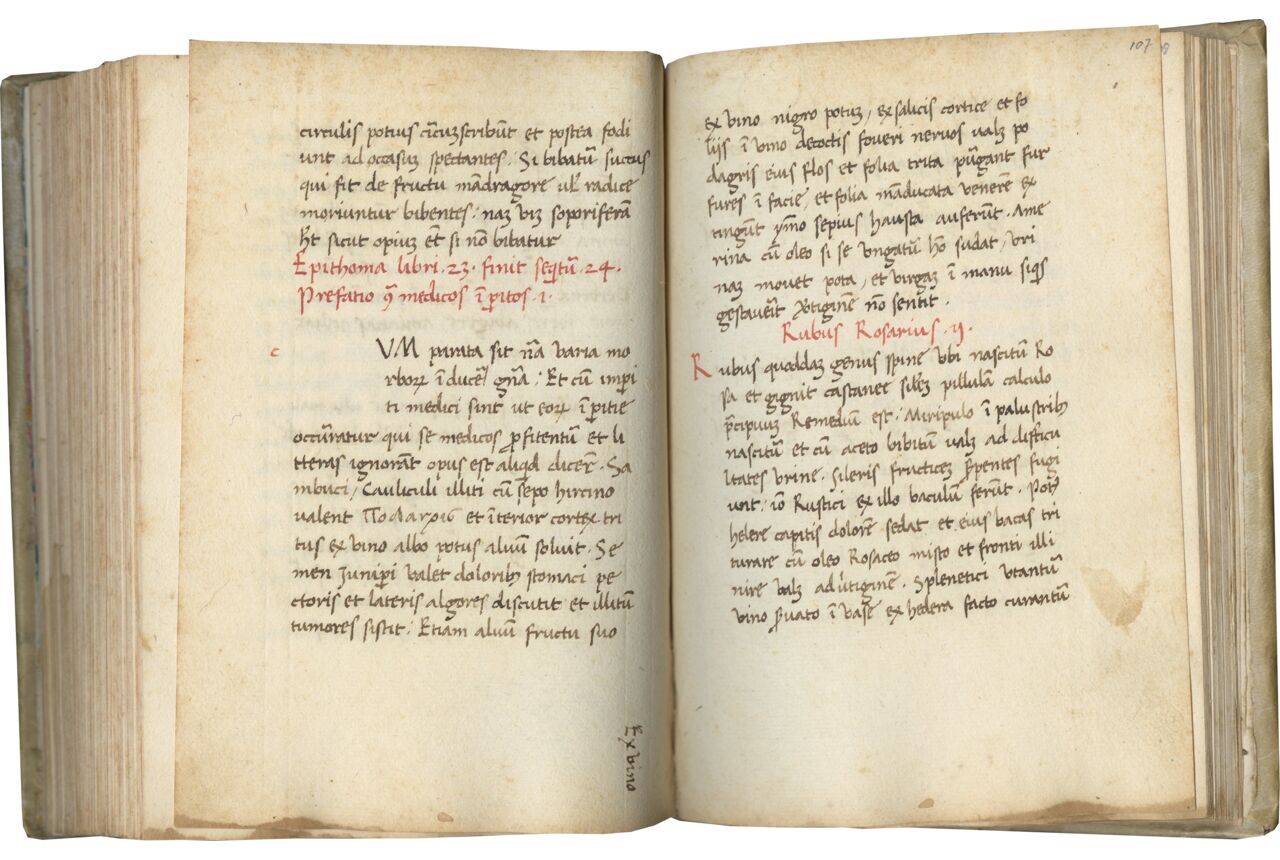 circulis potius cīrcūscribūt et postea fodi
unt ad occasuʒ spectantes. Si bibatū succus
qui fit de fructu mādragore vl' radice
moriuntur bibentes: naʒ viʒ soporiferā
ħt sicut opiuʒ et̄ si nō bibatur
Epithoma libri .23. finit seqtū .24.
Prefatio medicos īpitos .1.
c
VM parata sit nr̄a varia mo
rborꝝ īducer̄ gn̄a: Et cū impi
ti medici sint ut eorꝝ īpitie
occūratur qui se medicos ꝓfitentū et li
tteras ignorāt opus est aliqd dicer̄. Sa
mbuci, Cauliculi illiti cū sepo hircino
valent et īterior cortex tri
tus ex vino albo potus aluū soluit. Se
men Junipi valet doloribꝫ stomaci pe
ctoris et lateris algores discutit et illitū
tumores sistit: Etiam aluū fructu suo
Ex vino
107
ex vino nigro potuʒ, ex salicis cortice et fo
lijs ī vino decoctis foveri nervos valʒ po
dagris eius flos et folia trita pūgant fur
fures ī facie, et folia māducata venerē ex
tingūt ymo sepius hausta auferūt. Ame
rina cū oleo si se ungatū hō sudat, uri
naʒ movet pota, et virgaʒ ī manu siqs
gestauerit nō sentit.
Rubus Rosarius .ij.
Rubus quoddaʒ genus spine vbi nascitū Ro
sa et gignit castanee pillulā calculo
pcipuuʒ Remediū est: Miripulo ī palustribꝫ
nascitū et cū aceto bibitū valʒ ad difficu
ltates urine. Sileris fructiceʒ ꝑpentes fugi
unt: iō Rustici ex illo baculū ferūt.
helere capitis dolorē sedat et eius bacas tri
turare cū oleo Rosaceo misto et fronti illi
nire valʒ ad. Splenetici utantū
vino puato ī vase ex hedera facto curantū